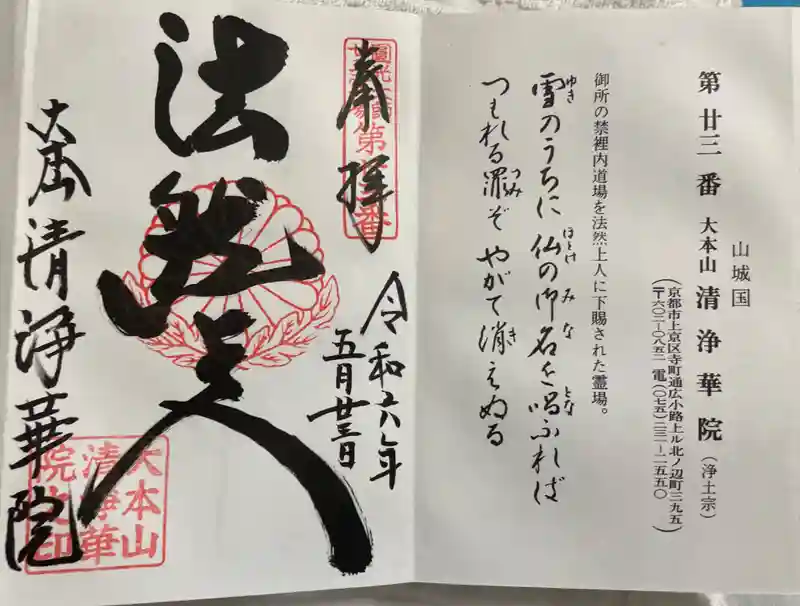 山城国
第廿三番 大本山 清浄華院（浄土宗）
（京都市上京区寺町通広小路上ル北ノ辺町三九五
〒六〇二−〇八五二 電（〇七五）二三一−二五五〇）
御所の禁裡内道場を法然上人に下賜された霊場。
雪のうちに 仏の御名を唱ふれば
ゆき ほとけ みな とな
つもれる罪ぞ やがて消えぬる
つみ き
奉拝
第廿三番
令和六年
五月廿三日
法然上人
大本山 清浄華院
大本山
清浄華
院之印